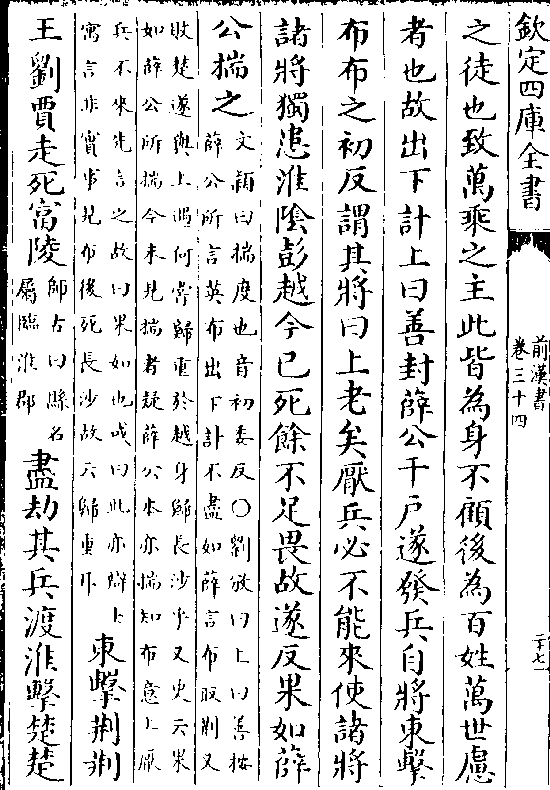 欽定四庫全書
前漢書
卷三十四
二十七
之徒也致萬乘之主此皆為身不顧後為百姓萬世慮
者也故出下計上曰善封薛公千户遂發兵自將東擊
布布之初反謂其將曰上老矣厭兵必不能來使諸將
諸將獨患淮陰彭越今已死餘不足畏故遂反果如薛
公揣之
文穎曰揣度也音初委反〇劉攽曰上曰善按
薛公所言英布出下計不盡如薛言布取荆又
敗楚遂與上遇何嘗歸重於越身歸長沙乎又史云果
如薛公所揣今未見揣者疑薛公本亦揣知布意上厭
兵不來先言之故曰果如也或曰此亦辯士
寓言非實事見布後死長沙故云歸重耳
東擊荆荆
王劉賈走死富陵
師古曰縣名
屬臨淮郡
盡劫其兵渡淮擊楚楚